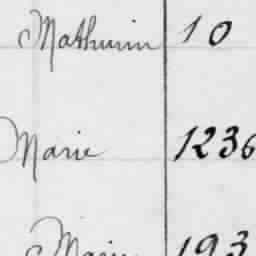 Mathurin 10
Marie 1236
Marie 193